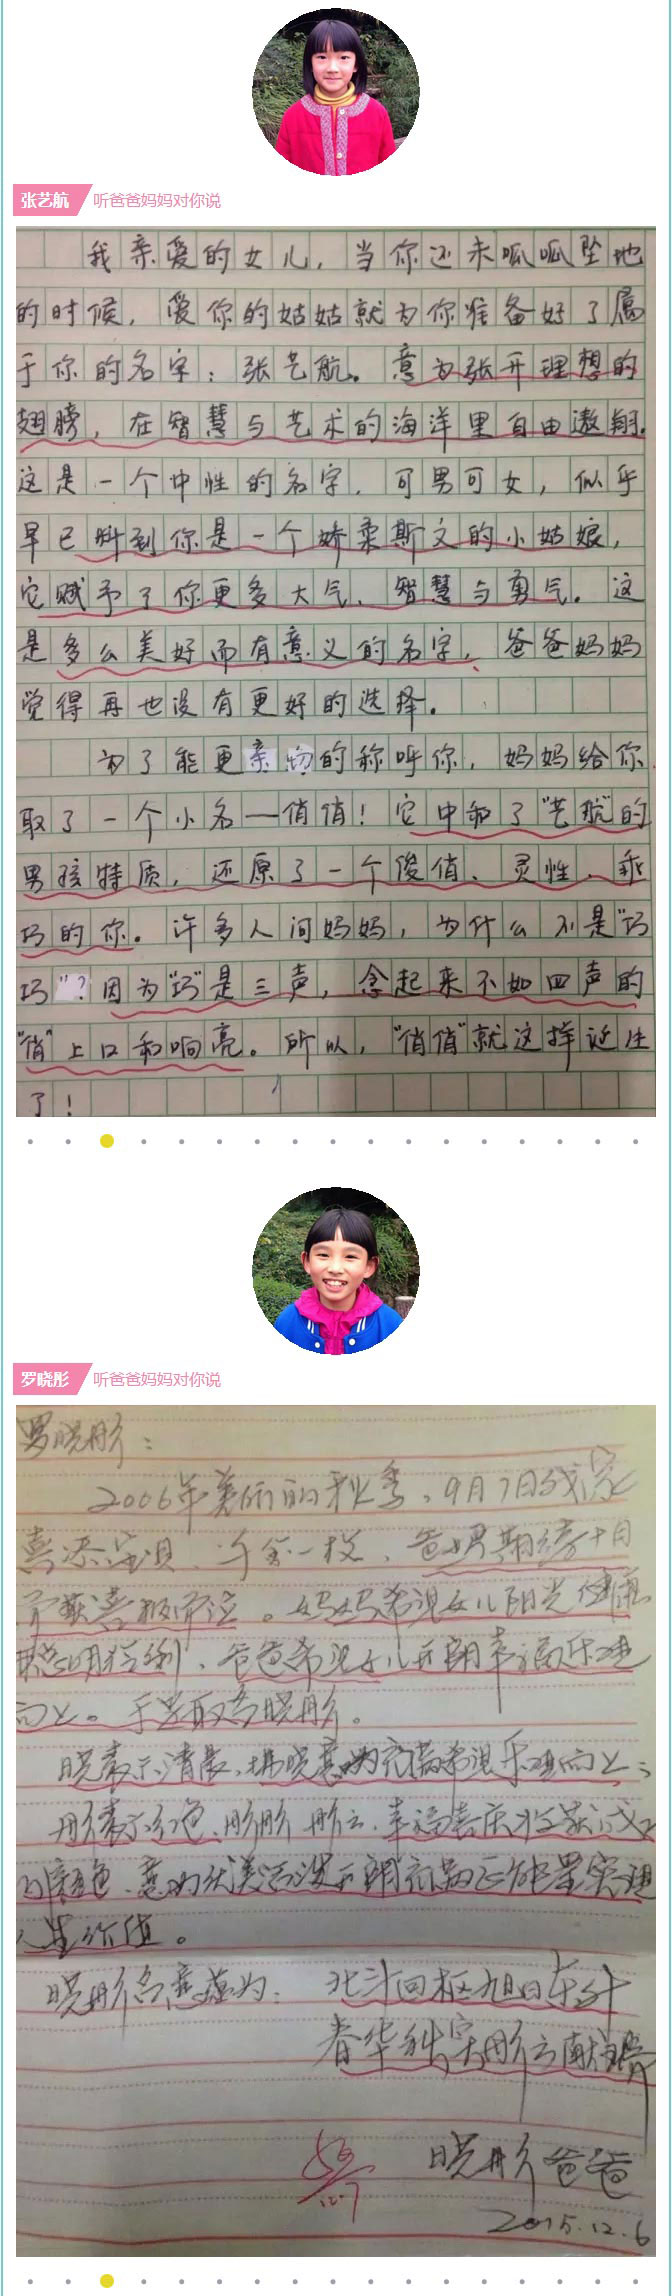 张艺航 听爸爸妈妈对你说
我亲爱的女儿，当你还未呱呱坠地
的时候，爱你的姑姑就为你准备好了属
于你的名字：张艺航。意为张开理想的
翅膀，在智慧与艺术的海洋里自由遨翔.
这是一个中性的名字，可男可女，似乎
早已料到你是一个娇柔斯文的小姑娘，
它赋予了你更多大气、智慧与勇气。这
是多么美好而有意义的名字，爸爸妈妈
觉得再也没有更好的选择。
为了能更亲切的称呼你，妈妈给你
取了一个小名—俏俏！它中和了“艺航”的
男孩特质，还原了一个俊俏、灵性、乖
巧的你。许多人问妈妈，为什么不是“巧
巧”？因为“巧”是三声，念起来不如四声的
“俏”上口和响亮。所以，“俏俏”就这样诞生
了！
罗晓彤 听爸爸妈妈对你说
罗晓彤：
2006年美丽的秋季，9月7日我家
喜添宝贝、千金一枚，爸妈期待十月
。妈妈希望女儿阳光健康
聪明伶俐、爸爸希望女儿开朗幸福乐观
向上。于是取名晓彤。
晓表示清晨、拂晓意喻充满希望乐观向上；
彤表示红色、彤彤 彤云、幸福喜庆
的颜色、意喻活泼开朗充满正能量实现
人生价值。
晓彤名意蕴为：北斗回枢旭日东升
春华秋实彤云献瑞
晓彤爸爸
2015.12.6